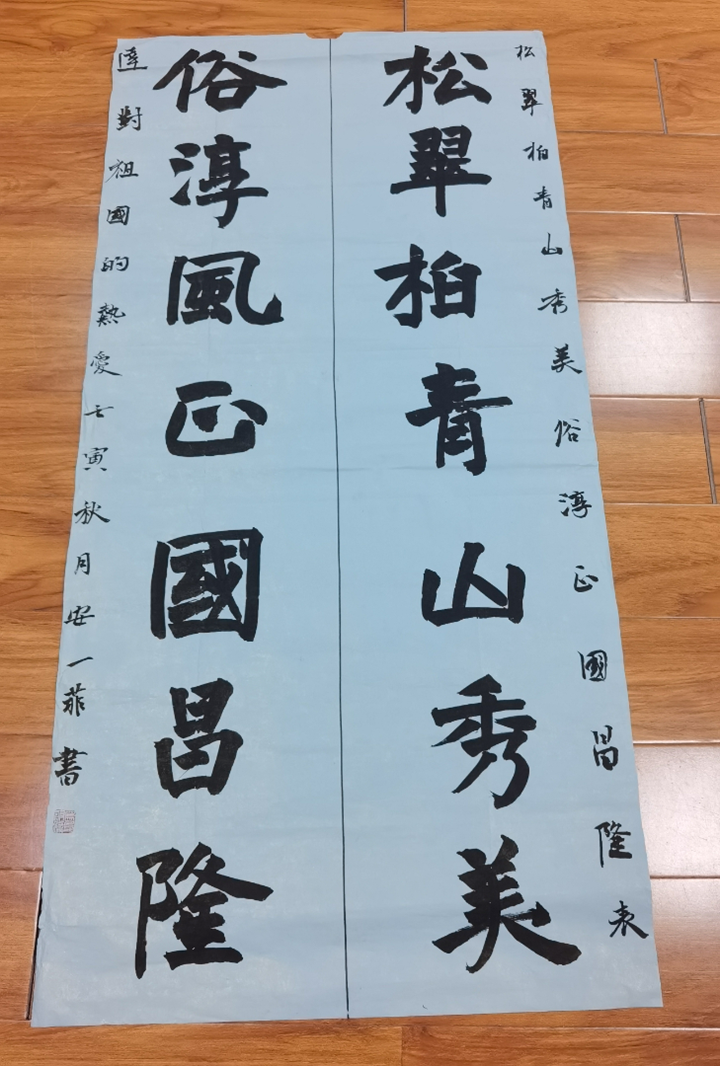 松翠柏青山秀美俗淳正國昌隆表
松翠柏青山秀美
俗淳風正國昌隆
達對祖國的熱愛壬寅秋月安一菲書